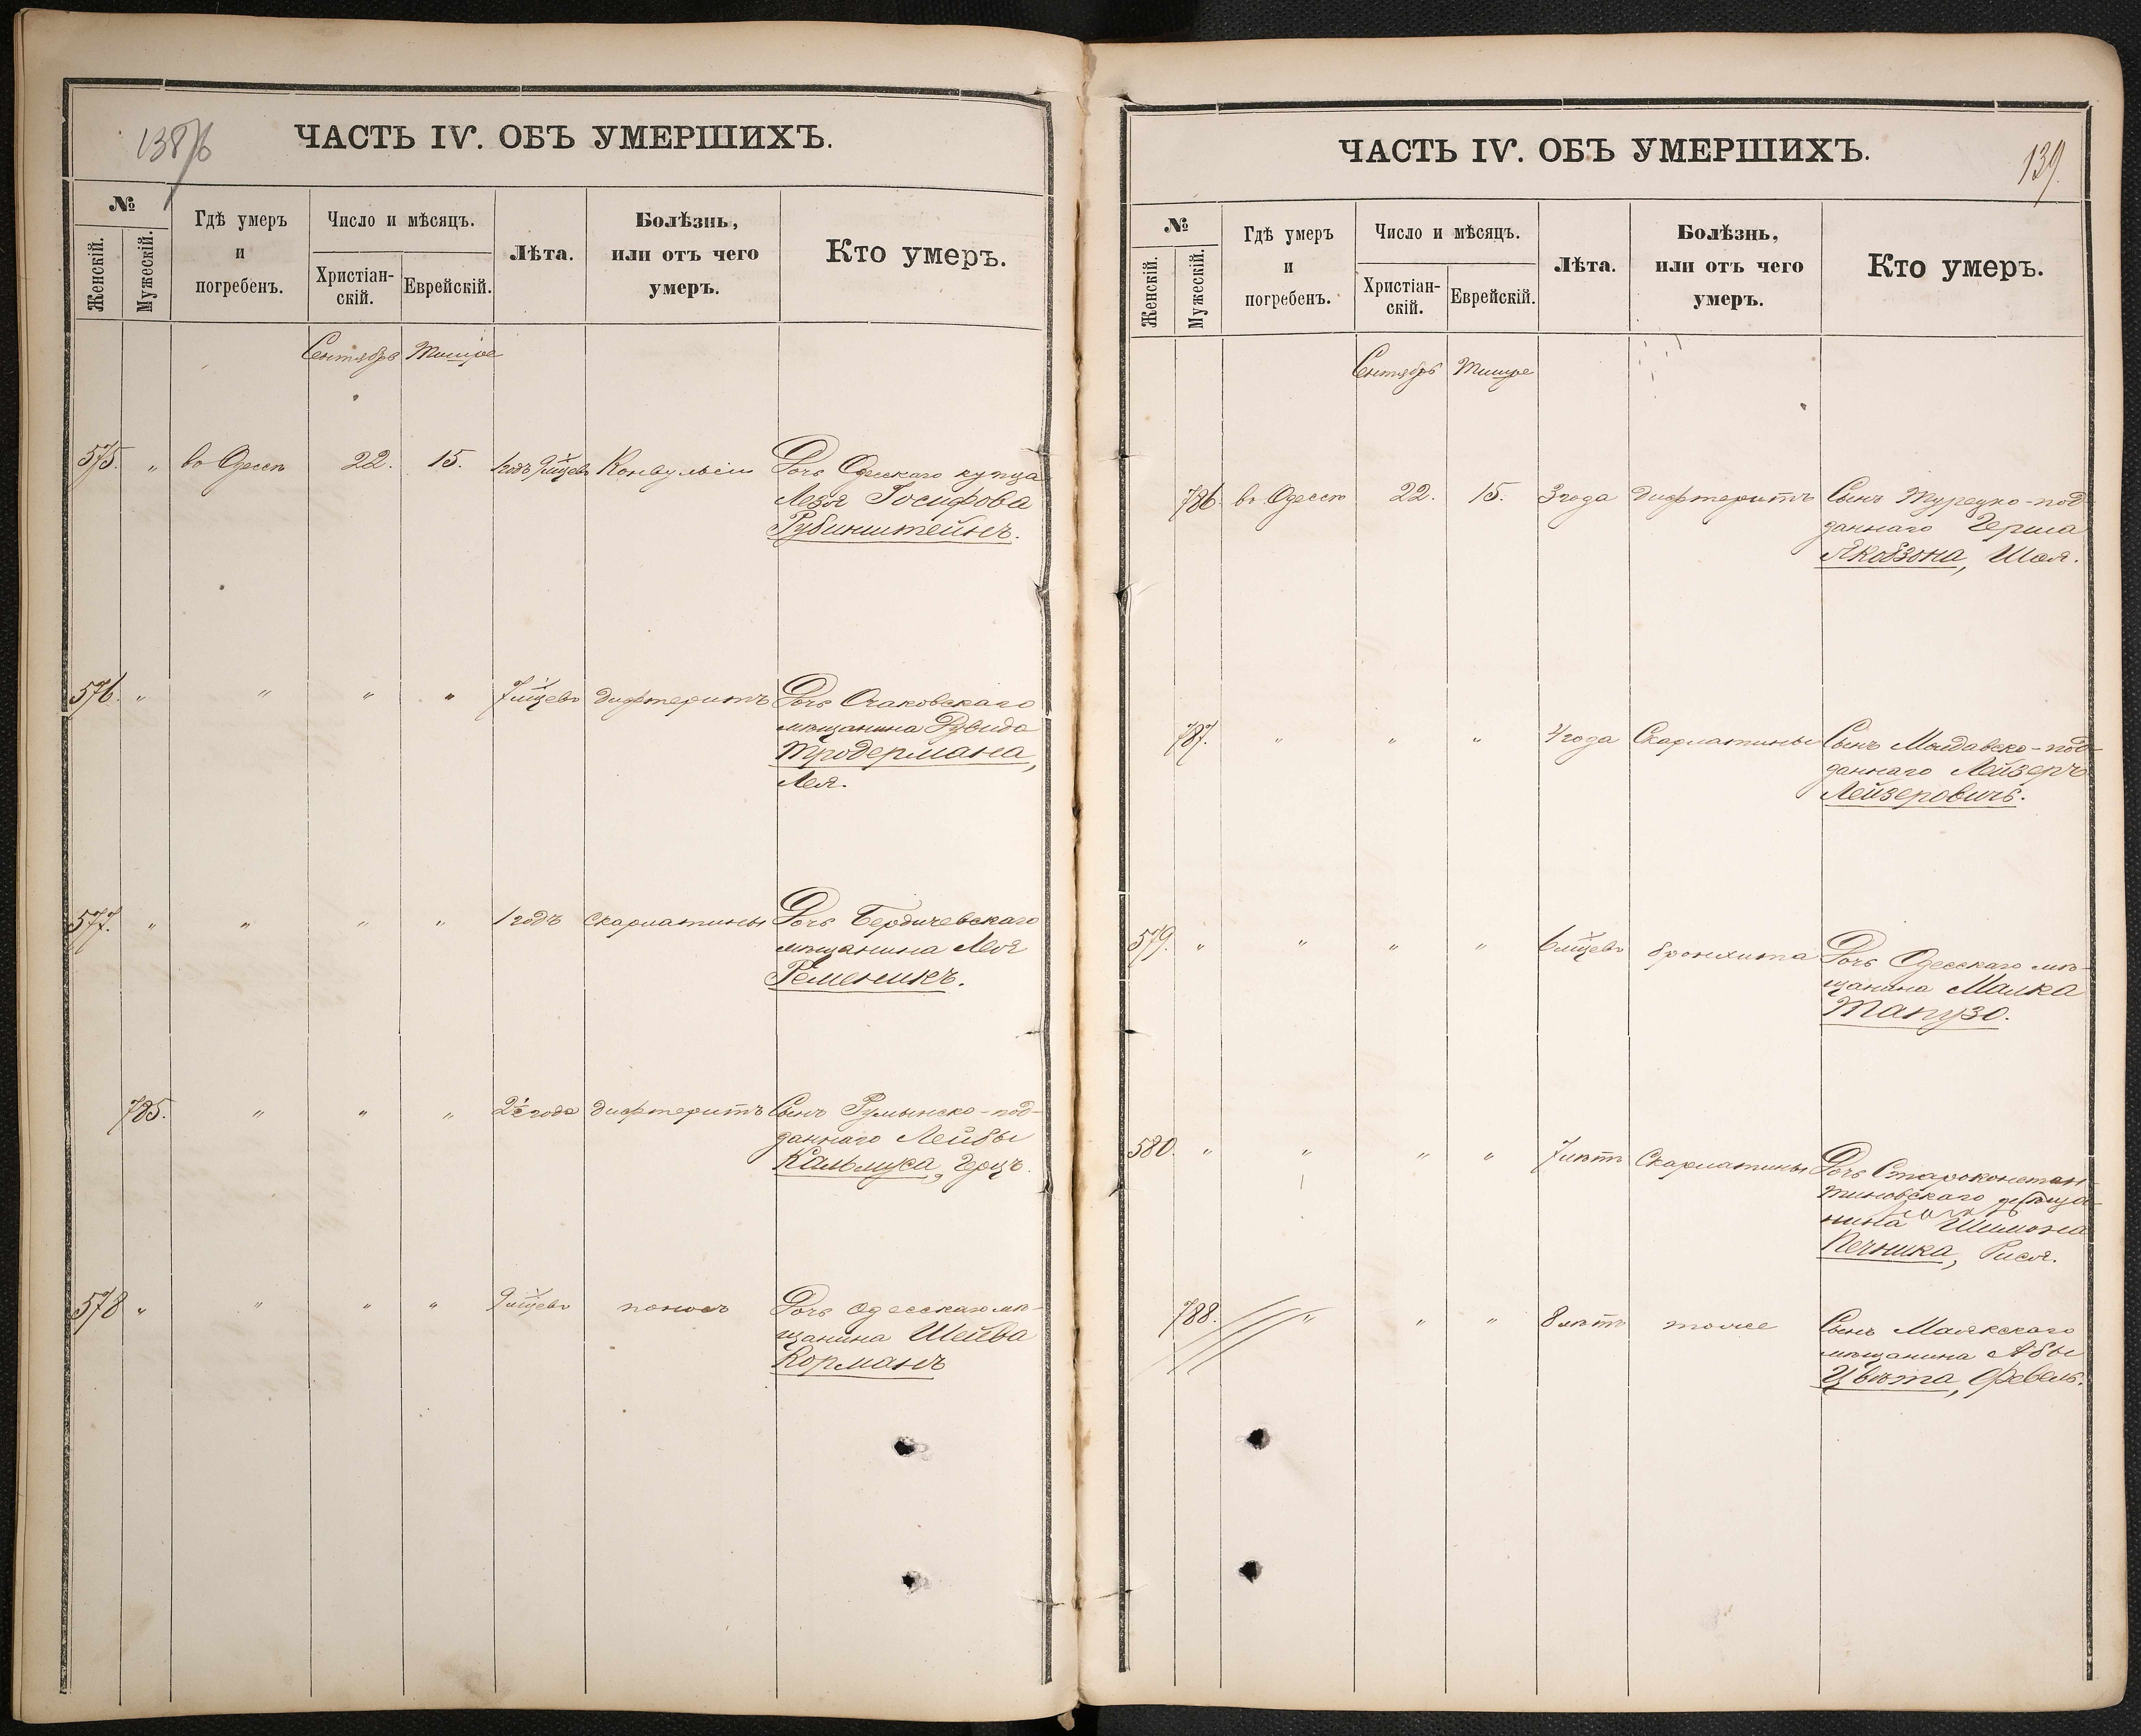 138/б
ЧАСТЬ IV. ОБЪ УМЕРШИХЪ.
№
Женскій.
Мужескій.
Гдѣ умеръ
и
погребенъ.
Число и мѣсяцъ.
Христіан-
скій.
Еврейскій.
Лѣта.
Болѣзнь,
или отъ чего
умеръ.
Кто умеръ.
Сентябрь Тишре
575. " въ Одессѣ 22. 15. 1 годъ 9 мѣцевъ Конвульсіи Дочь Одесскаго купца
Лея Іосифова
Рубинштейнъ.
576. " " " " 7 мѣцевъ дифтеритъ Дочь Очаковскаго
мѣщанина Рувида
Тродермана,
Лея.
577. " " " " 1 годъ Скарлатины Дочь Бердичевскаго
мѣщанина Лея
Ременикъ.
785. " " " 2½ года дифтеритъ Сынъ Румынско-под-
даннаго Лейбы
Кальмуса, Герцъ.
578 " " " " 9 мѣцевъ поносъ Дочь Одесскаго мѣ-
щанина Шейва
Корманъ
ЧАСТЬ IV. ОБЪ УМЕРШИХЪ.
139.
№
Женскій.
Мужескій.
Гдѣ умеръ
и
погребенъ.
Число и мѣсяцъ.
Христіан-
скій.
Еврейскій.
Лѣта.
Болѣзнь,
или отъ чего
умеръ.
Кто умеръ.
Сентябрь Тишре
786. въ Одессѣ 22. 15. 3 года дифтеритъ Сынъ Турецко-под-
даннаго Герша
Якобзона, Шоя.
787. " " " 4 года Скарлатины Сынъ Молдавско-под-
даннаго Лейзеръ
Лейзеровичъ.
579. " " " " 6 мѣцевъ бронхита Дочь Одесскаго мѣ-
щанина Малка
Тапузо.
580. " " " " 7 лѣтъ Скарлатины Дочь Староконстан-
тиновскаго мѣща-
нина Шимона
Печника, Рися.
788. " " " 8 лѣтъ тоже Сынъ Маякскаго
мѣщанина Абы
Цвѣта, Февель.